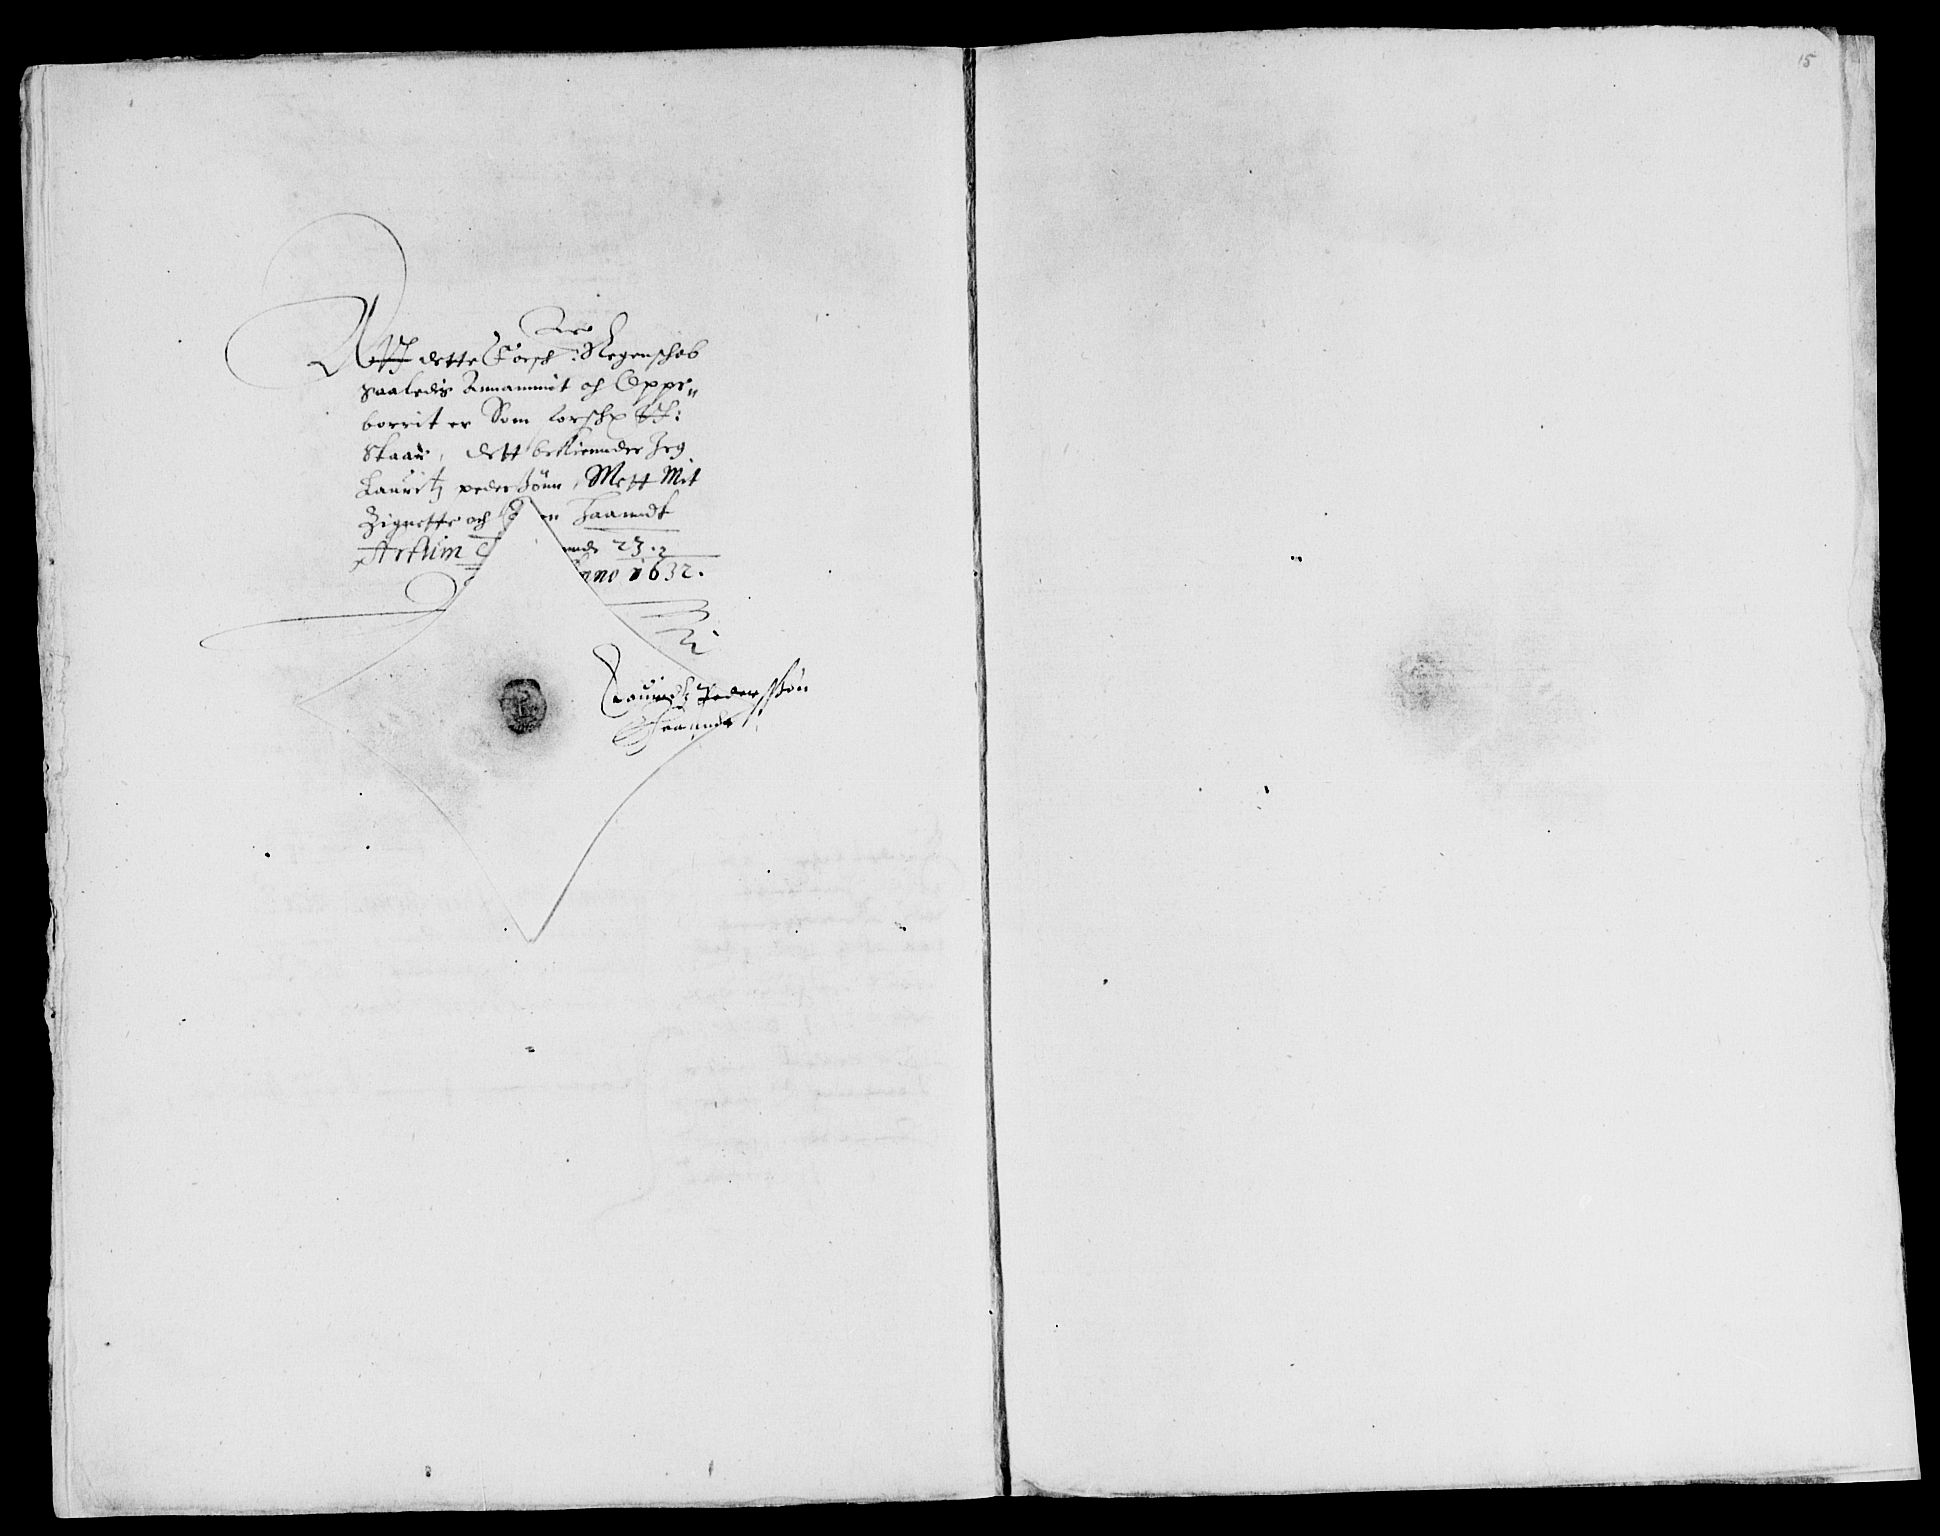 15
Att dette Forsch: Regenschab
saaledis Annammit och Oppe„
borrit er Som forsch St:
Staar, dett bekiennder Jeg
Lauritz pederssønn, Mett Mit
Zignette och Egen Haanndt
Actum
23
Anno 1632.
Lauritz Pederssøn
Haanndt